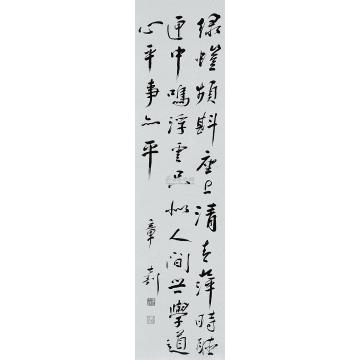 绿螘频斟座上清青萍时听
匣中鸣浮云只似人间世学道
心平事亦平
章士钊